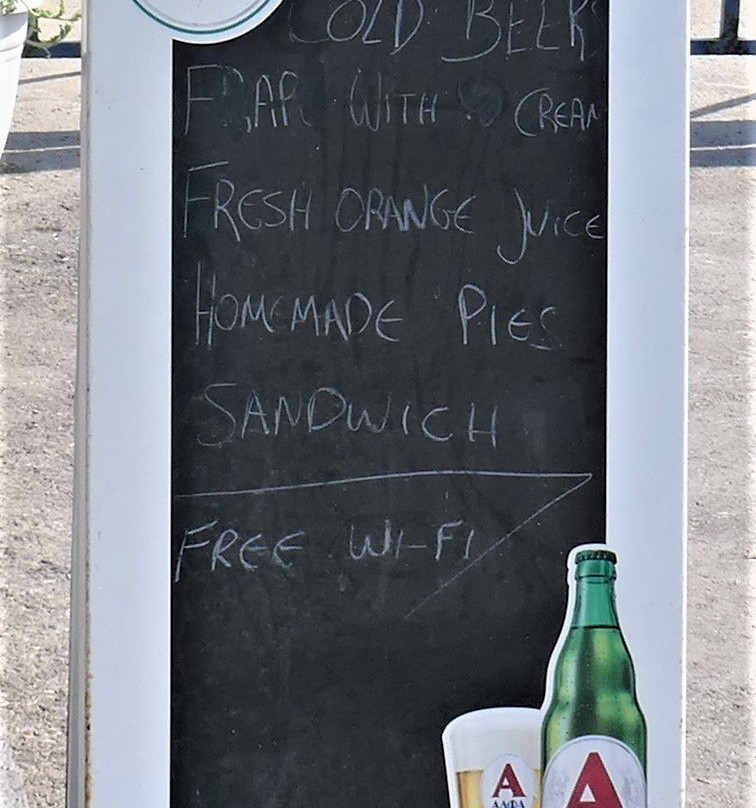 COLD BEERS
WITH CREAM
FRESH ORANGE JUICE
HOMEMADE PIES
SANDWICH
FREE WI-FI
A
ΑΛΦΑ
A